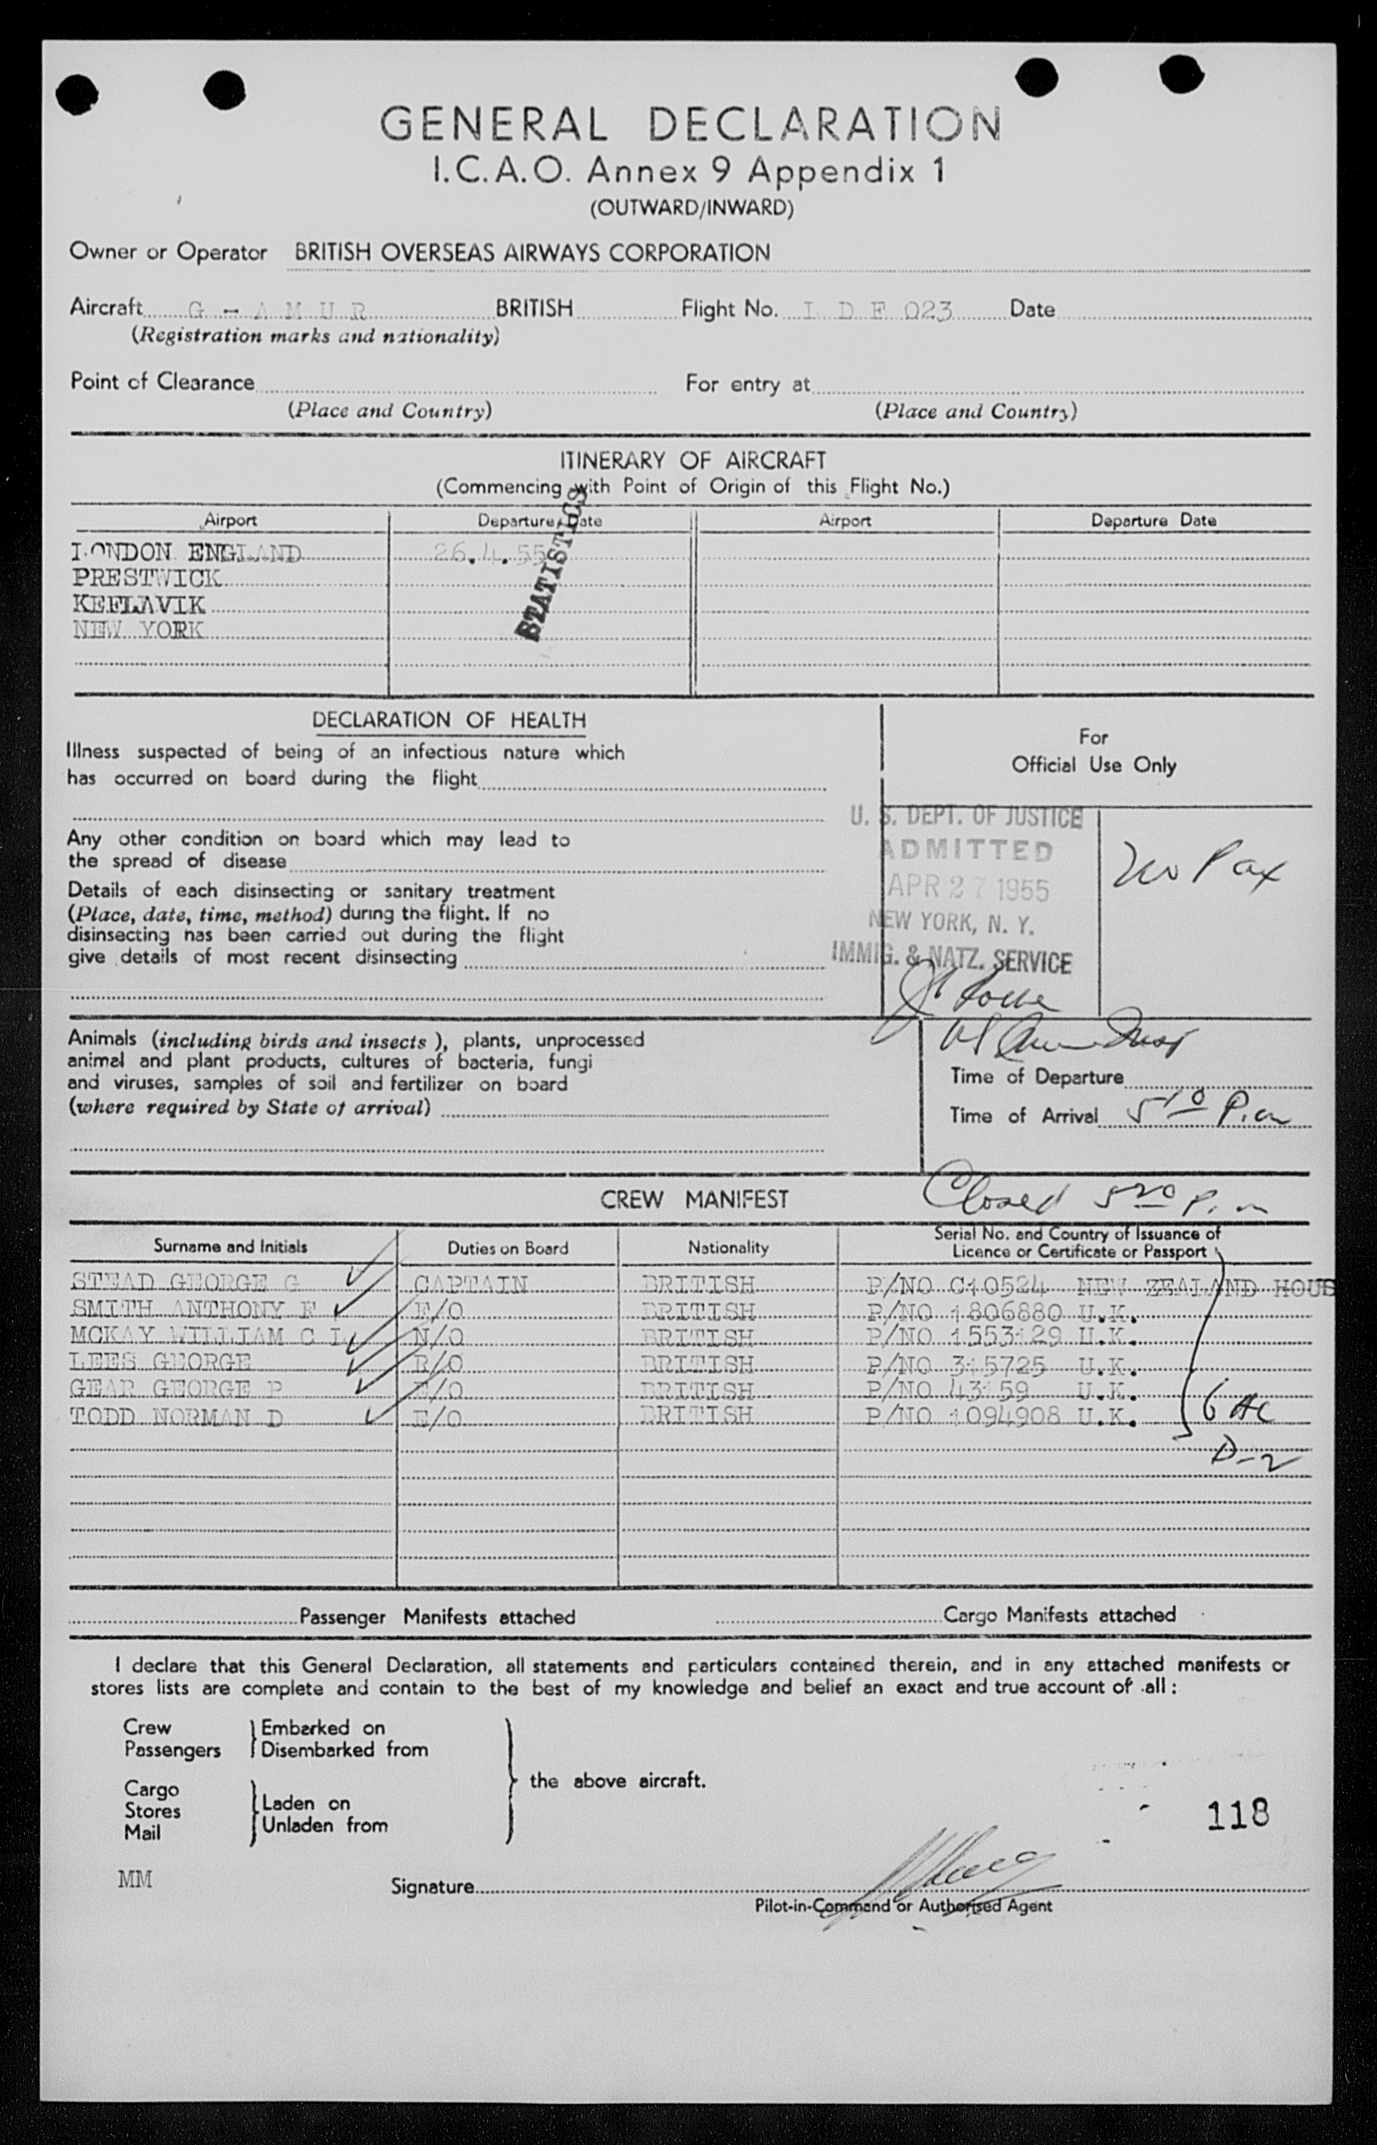 GENERAL DECLARATION
I.C.A.O. Annex 9 Appendix 1
(OUTWARD/INWARD)
Owner or Operator BRITISH OVERSEAS AIRWAYS CORPORATION
Aircraft G - A M U R BRITISH Flight No. I D F 023 Date
(Registration marks and nationality)
Point of Clearance For entry at
(Place and Country) (Place and Country)
ITINERARY OF AIRCRAFT
(Commencing with Point of Origin of this Flight No.)
Airport Departure Date Airport Departure Date
LONDON ENGLAND 26.4.55
PRESTWICK
KEFLAVIK
NEW YORK
STATISTICS
DECLARATION OF HEALTH
Illness suspected of being of an infectious nature which
has occurred on board during the flight
Any other condition on board which may lead to
the spread of disease
Details of each disinsecting or sanitary treatment
(Place, date, time, method) during the flight. If no
disinsecting has been carried out during the flight
give details of most recent disinsecting
For
Official Use Only
U. S. DEPT. OF JUSTICE
ADMITTED
APR 27 1955
NEW YORK, N. Y.
IMMIG. & NATZ. SERVICE
No Pax
Animals (including birds and insects ), plants, unprocessed
animal and plant products, cultures of bacteria, fungi
and viruses, samples of soil and fertilizer on board
(where required by State of arrival)
Time of Departure
Time of Arrival 5 10 P.m
CREW MANIFEST Closed 5 20 P.m
Surname and Initials Duties on Board Nationality Serial No. and Country of Issuance of
Licence or Certificate or Passport
STEAD GEORGE G CAPTAIN BRITISH P/NO C10524 NEW ZEALAND HOUS
SMITH ANTHONY F F/O BRITISH P/NO 1806880 U.K.
MCKAY WILLIAM C I N/O BRITISH P/NO 1553129 U.K.
LEES GEORGE R/O BRITISH P/NO 315725 U.K.
GEAR GEORGE P E/O BRITISH P/NO 43159 U.K.
TODD NORMAN D E/O BRITISH P/NO 1094908 U.K.
D-2
Passenger Manifests attached Cargo Manifests attached
I declare that this General Declaration, all statements and particulars contained therein, and in any attached manifests or
stores lists are complete and contain to the best of my knowledge and belief an exact and true account of all :
Crew Embarked on
Passengers Disembarked from
the above aircraft.
Cargo
Stores Laden on
Mail Unladen from
118
MM
Signature
Pilot-in-Command or Authorised Agent